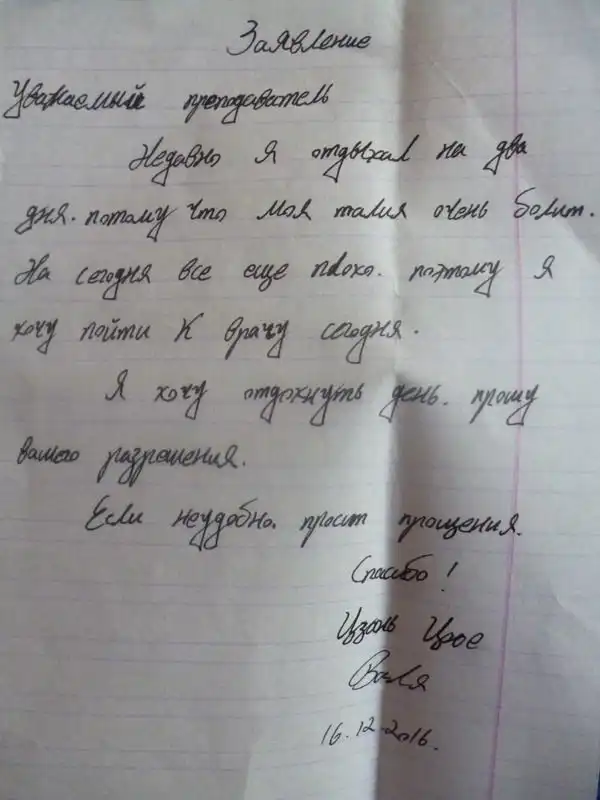 Заявление
Уважаемый преподаватель
Недавно я отдыхал на два
дня. потому что моя талия очень болит.
На сегодня все еще плохо. поэтому я
хочу пойти к врачу сегодня.
Я хочу отдохнуть день. прошу
вашего разрешения.
Если неудобно. просит прощения.
Спасибо!
Цзянь
Валя
16.12.2016.